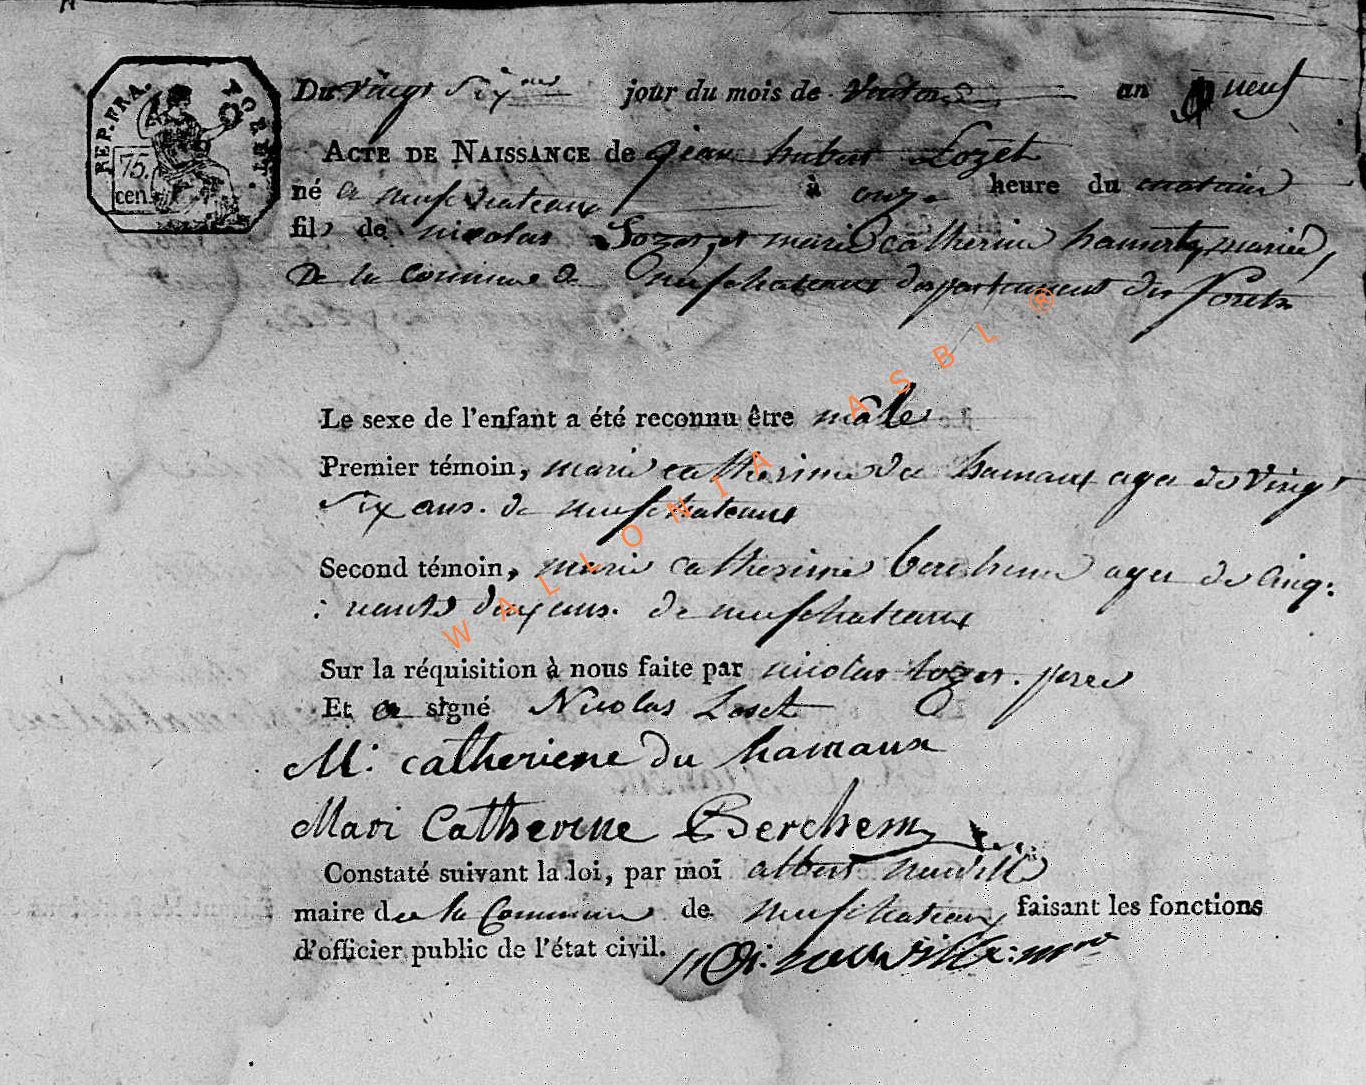 REP. FRA. 75. cen.
Du vingt sixme jour du mois de an neuf
ACTE DE NAISSANCE de jean hubert Lozet
né a neufchateaux à onze heure du matin
fils de nicolas Lozet et marie catherine mariée,
De la commune de neufchateaux departement des forets
Le sexe de l'enfant a été reconnu être mâle
Premier témoin, marie catherine du hamaux agee de vingt
six ans. de neufchateaux
Second témoin, marie catherine berchem agee de cinq:
: uante deux ans. de neufchateaux
Sur la réquisition à nous faite par nicolas lozet. pere
Et a signé Nicolas Loset
M: catheriene du hamaux
Mari Catherine Berchem
Constaté suivant la loi, par moi albert neuville
maire de la Commune de neufchateaux faisant les fonctions
d'officier public de l'état civil.
WALLONIA ASBL ®